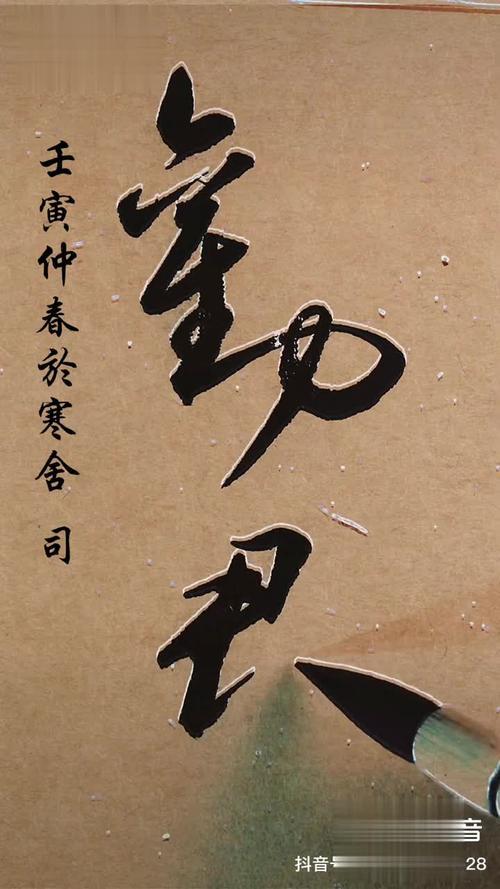 勸君
壬寅仲春於寒舍 司
音
抖音 28